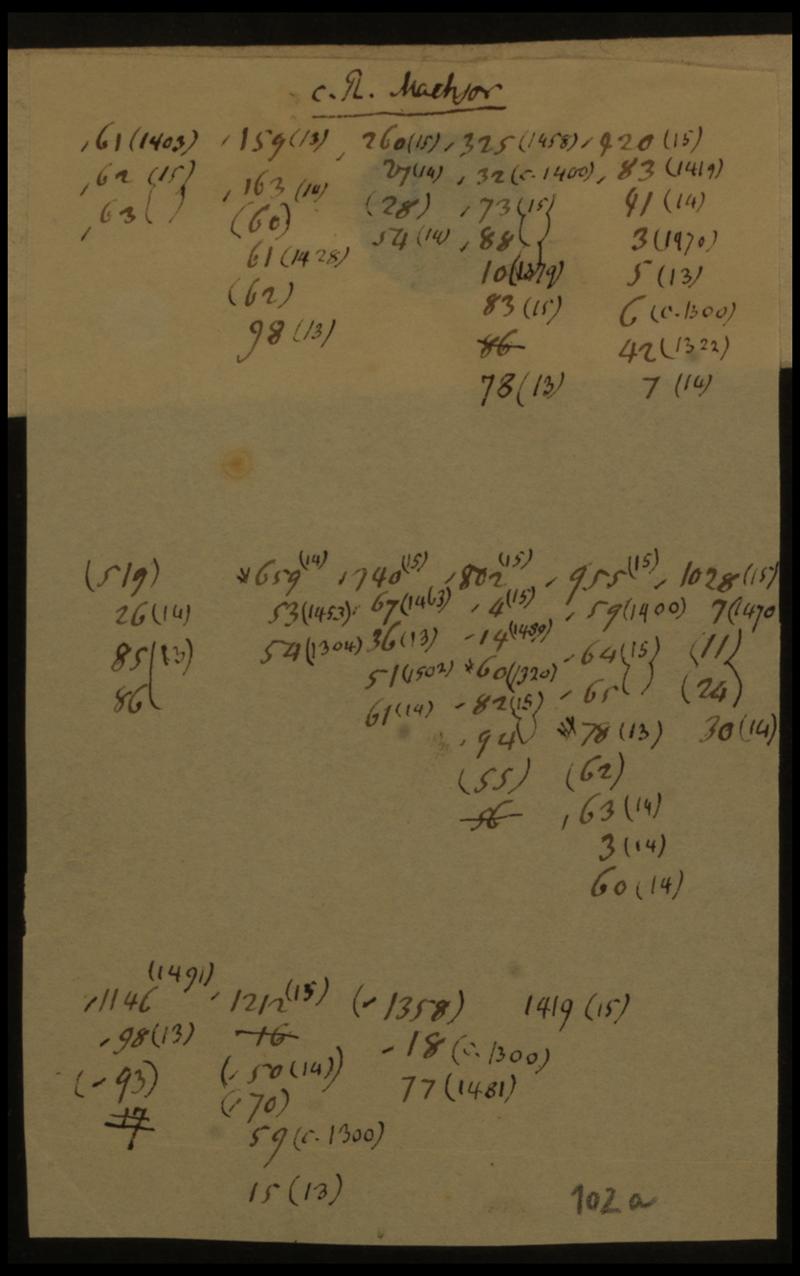 c. R. Machsor
, 61 (1403) , 159 (13) , 260 (15) , 325 (1458) , 420 (15)
, 62 (15) , 163 (14) 27 (14) , 32 (c. 1400) , 83 (1419)
, 63 ( ) (60) (28) , 73 (15) 41 (14)
61 (1428) 54 (14) , 88 3 (1470)
(62) 10 (1379) 5 (13)
98 (13) 83 (15) 6 (c. 1300)
86 42 (1322)
78 (13) 7 (14)
(519) *659 (14) , 740 (15) , 802 (15) , 955 (15) , 1028 (15)
26 (14) 53 (1453) , 67 (1463) , 4 (15) , 59 (1400) 7 (1470
85 (13) 54 (1304) 36 (13) - 14 (1489) - 64 (15) (11)
86 51 (1502) *60 (1320) - 65 ( ) (24)
61 (14) - 82 (15) *78 (13) 30 (14)
, 94 (62)
(55) , 63 (14)
56 3 (14)
60 (14)
, 1146 (1491) , 1212 (15) (- 1358) 1419 (15)
- 98 (13) 16 - 18 (c. 1300)
(- 93) (, 50 (14)) 77 (1481)
17 (, 70)
59 (c. 1300)
15 (13)
102 a